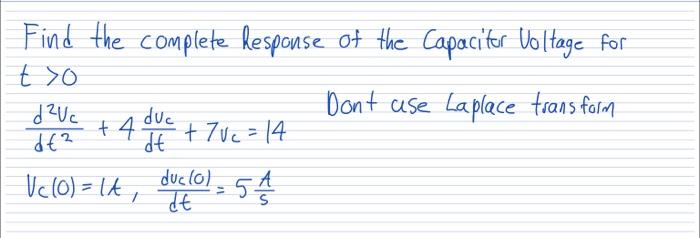 Find the complete Response of the Capacitor Voltage for
t >0
d²Vc/dt² + 4 dvc/dt + 7Vc = 14
Dont use Laplace transform
Vc(0) = 1A, dvc(0)/dt = 5 A/s